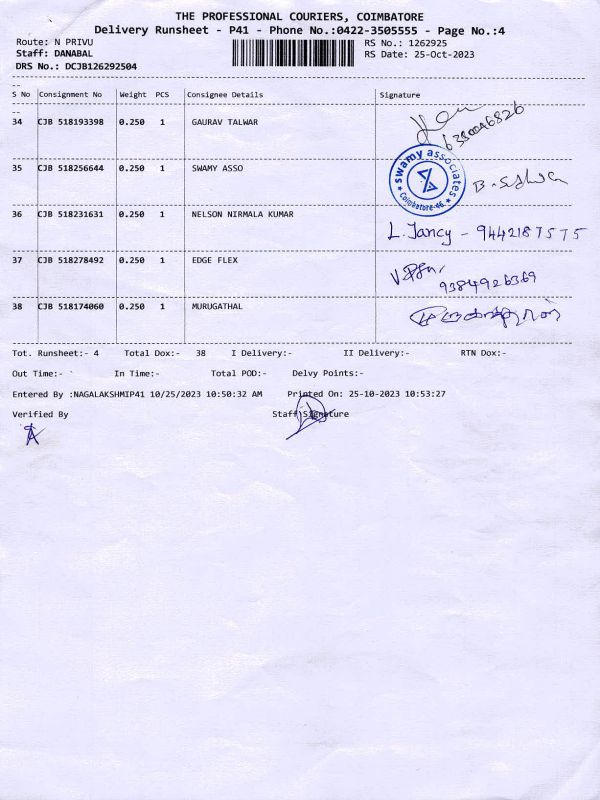 THE PROFESSIONAL COURIERS, COIMBATORE
Delivery Runsheet - P41 - Phone No.:0422-3505555 - Page No.:4
Route: N PRIVU RS No.: 1262925
Staff: DANABAL RS Date: 25-Oct-2023
DRS No.: DCJB126292504
S No Consignment No Weight PCS Consignee Details Signature
34 CJB 518193398 0.250 1 GAURAV TALWAR
35 CJB 518256644 0.250 1 SWAMY ASSO swamy associates Coimbatore-46
36 CJB 518231631 0.250 1 NELSON NIRMALA KUMAR L. Jancy - 9442187575
37 CJB 518278492 0.250 1 EDGE FLEX 9384926369
38 CJB 518174060 0.250 1 MURUGATHAL
Tot. Runsheet:- 4 Total Dox:- 38 I Delivery:- II Delivery:- RTN Dox:-
Out Time:- In Time:- Total POD:- Delvy Points:-
Entered By :NAGALAKSHMIP41 10/25/2023 10:50:32 AM Printed On: 25-10-2023 10:53:27
Verified By Staff Signature